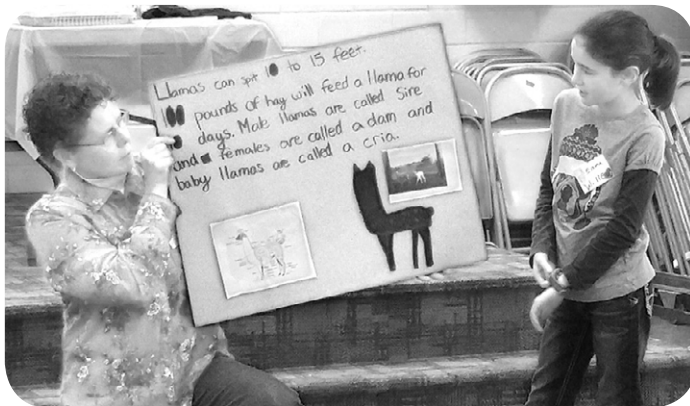 Llamas can spit 10 to 15 feet.
100 pounds of hay will feed a llama for
days. Male llamas are called Sire
and females are called a dam and
baby llamas are called a cria..